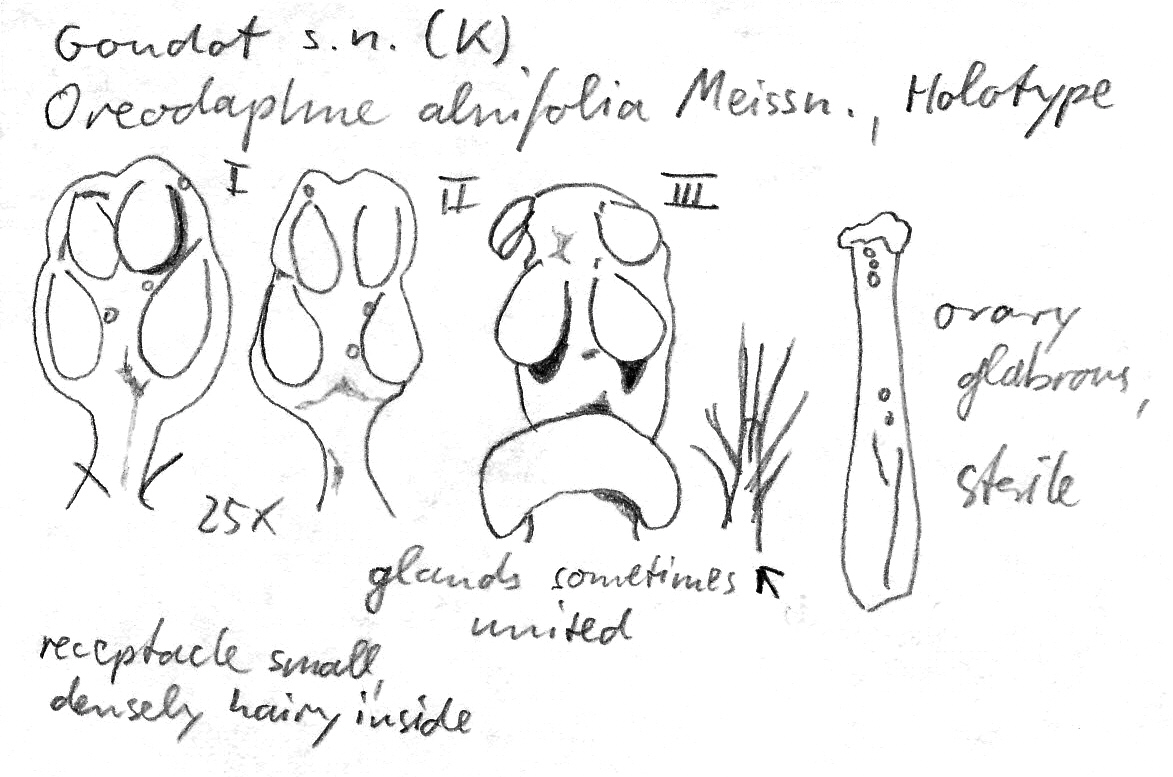 Goudot s.n. (K)
Oreodaphne alnifolia Meissn., Holotype
I
II
III
ovary
glabrous,
sterile
25x
glands sometimes
united
receptacle small,
densely hairy inside